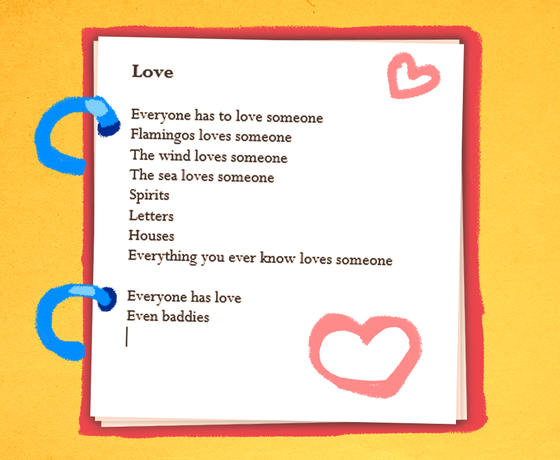 Love
Everyone has to love someone
Flamingos loves someone
The wind loves someone
The sea loves someone
Spirits
Letters
Houses
Everything you ever know loves someone
Everyone has love
Even baddies